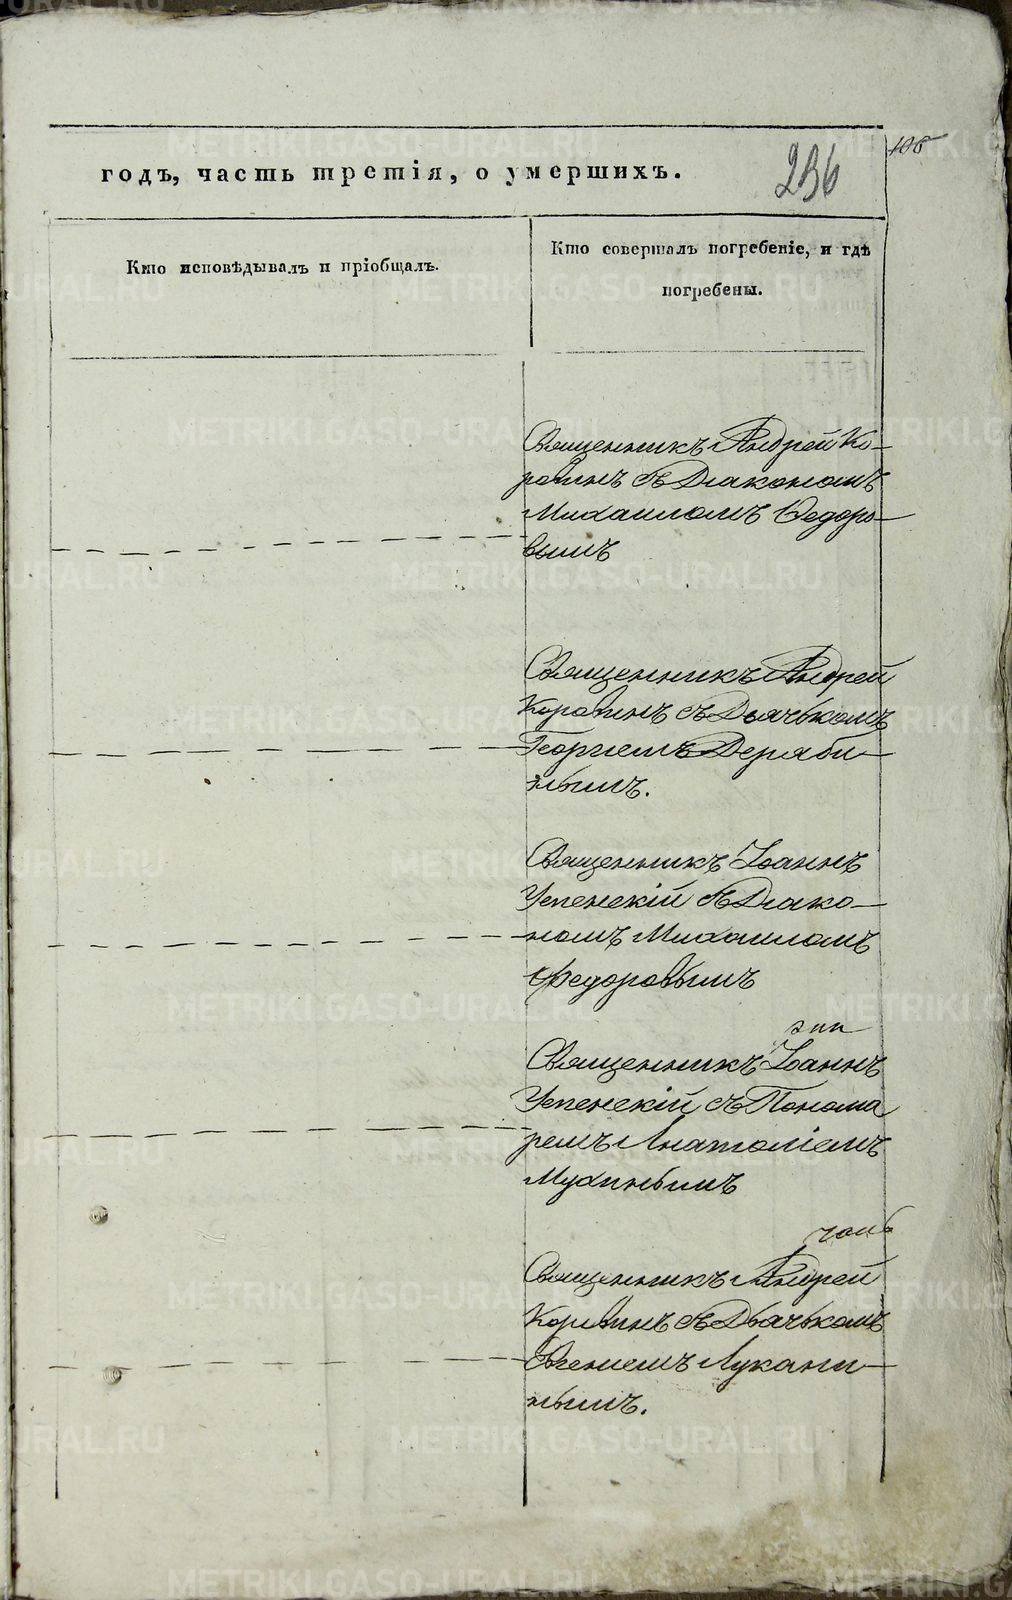 годъ, часть третія, о умершихъ.
236
106
Кто исповѣдывалъ и пріобщалъ.
Кто совершалъ погребеніе, и гдѣ
погребены.
Священникъ Андрей Ко-
ровинъ съ Діакономъ
Михаиломъ Ѳедоро-
вымъ
Священникъ Андрей
Коровинъ съ Дьячькомъ
Георгіемъ Деряби-
нымъ.
Священникъ Іоаннъ
Успенскій съ Діако-
номъ Михаиломъ
Федоровымъ
Священникъ Іоаннъ
Успенскій съ Понома
ремъ Анатоліемъ
Мухинымъ
Священникъ Андрей
Коровинъ съ Дьячькомъ
Евгеніемъ Лукани-
нымъ.
METRIKI.GASO-URAL.RU